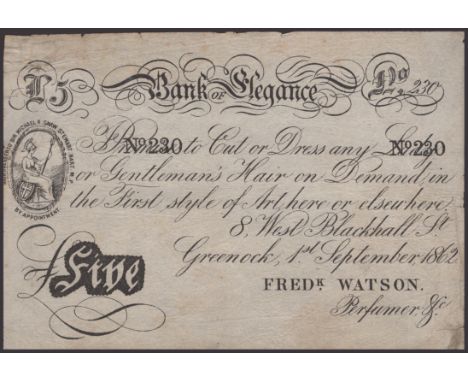 £5 Bank of Elegance No. 230
HAIRDRESSER TO SIR MICHAEL R. SHAW STEWART BART. M.P.
BY APPOINTMENT
I Promise to Cut or Dress any Lady's
No 230 No 230
or Gentleman's Hair on Demand, in
the First style of Art, here or elsewhere.
8, West Blackhall St
Greenock, 1st September 1862
£Five
FREDK. WATSON.
Perfumer &c.